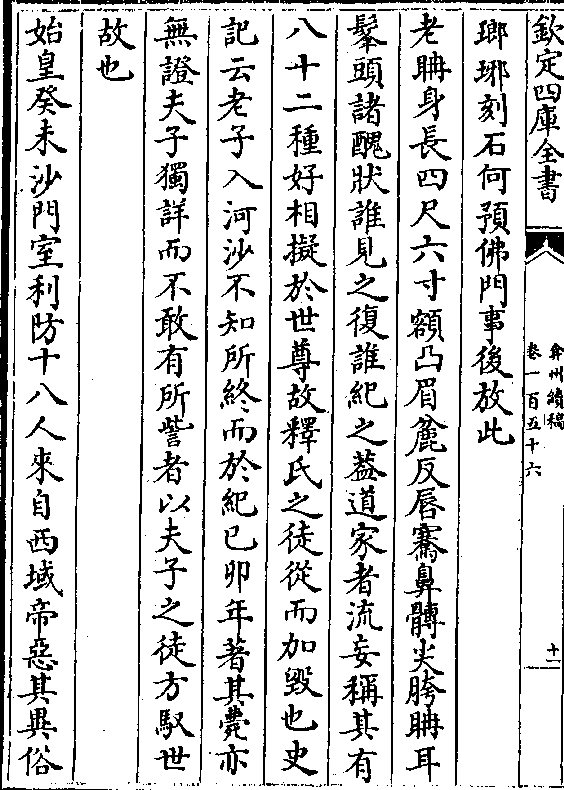 欽定四庫全書
弇州續稿
卷一百五十六
十一
瑯琊刻石何預佛門事後放此
老聃身長四尺六寸額凸眉麄反唇騫鼻髆尖胯聃耳
髼頭諸醜狀誰見之復誰紀之葢道家者流妄稱其有
八十二種好相擬於世尊故釋氏之徒從而加毀也史
記云老子入河沙不知所終而於紀已卯年著其薨亦
無證夫子獨詳而不敢有所訾者以夫子之徒方馭世
故也
始皇癸未沙門室利防十八人來自西域帝惡其異俗